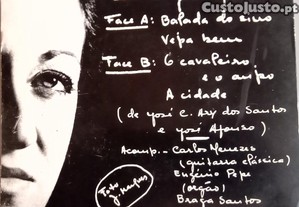 CustoJusto.pt
Face A: Balada do sino
Vepa bem
Face B: O cavaleiro
e o anjo
A cidade
(de José C. Ary dos Santos
e José Afonso)
Acomp. - Carlos Menezes
(guitarra clássica)
Eugénio Pepe
(orgão)
Braga Santos
Foto